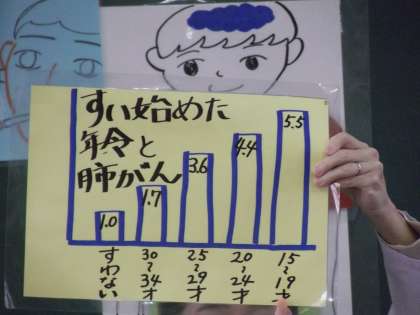 すい始めた
年令と
肺がん
1.0
1.7
3.6
4.4
5.5
すわない
30~34才
25~29才
20~24才
15~19才